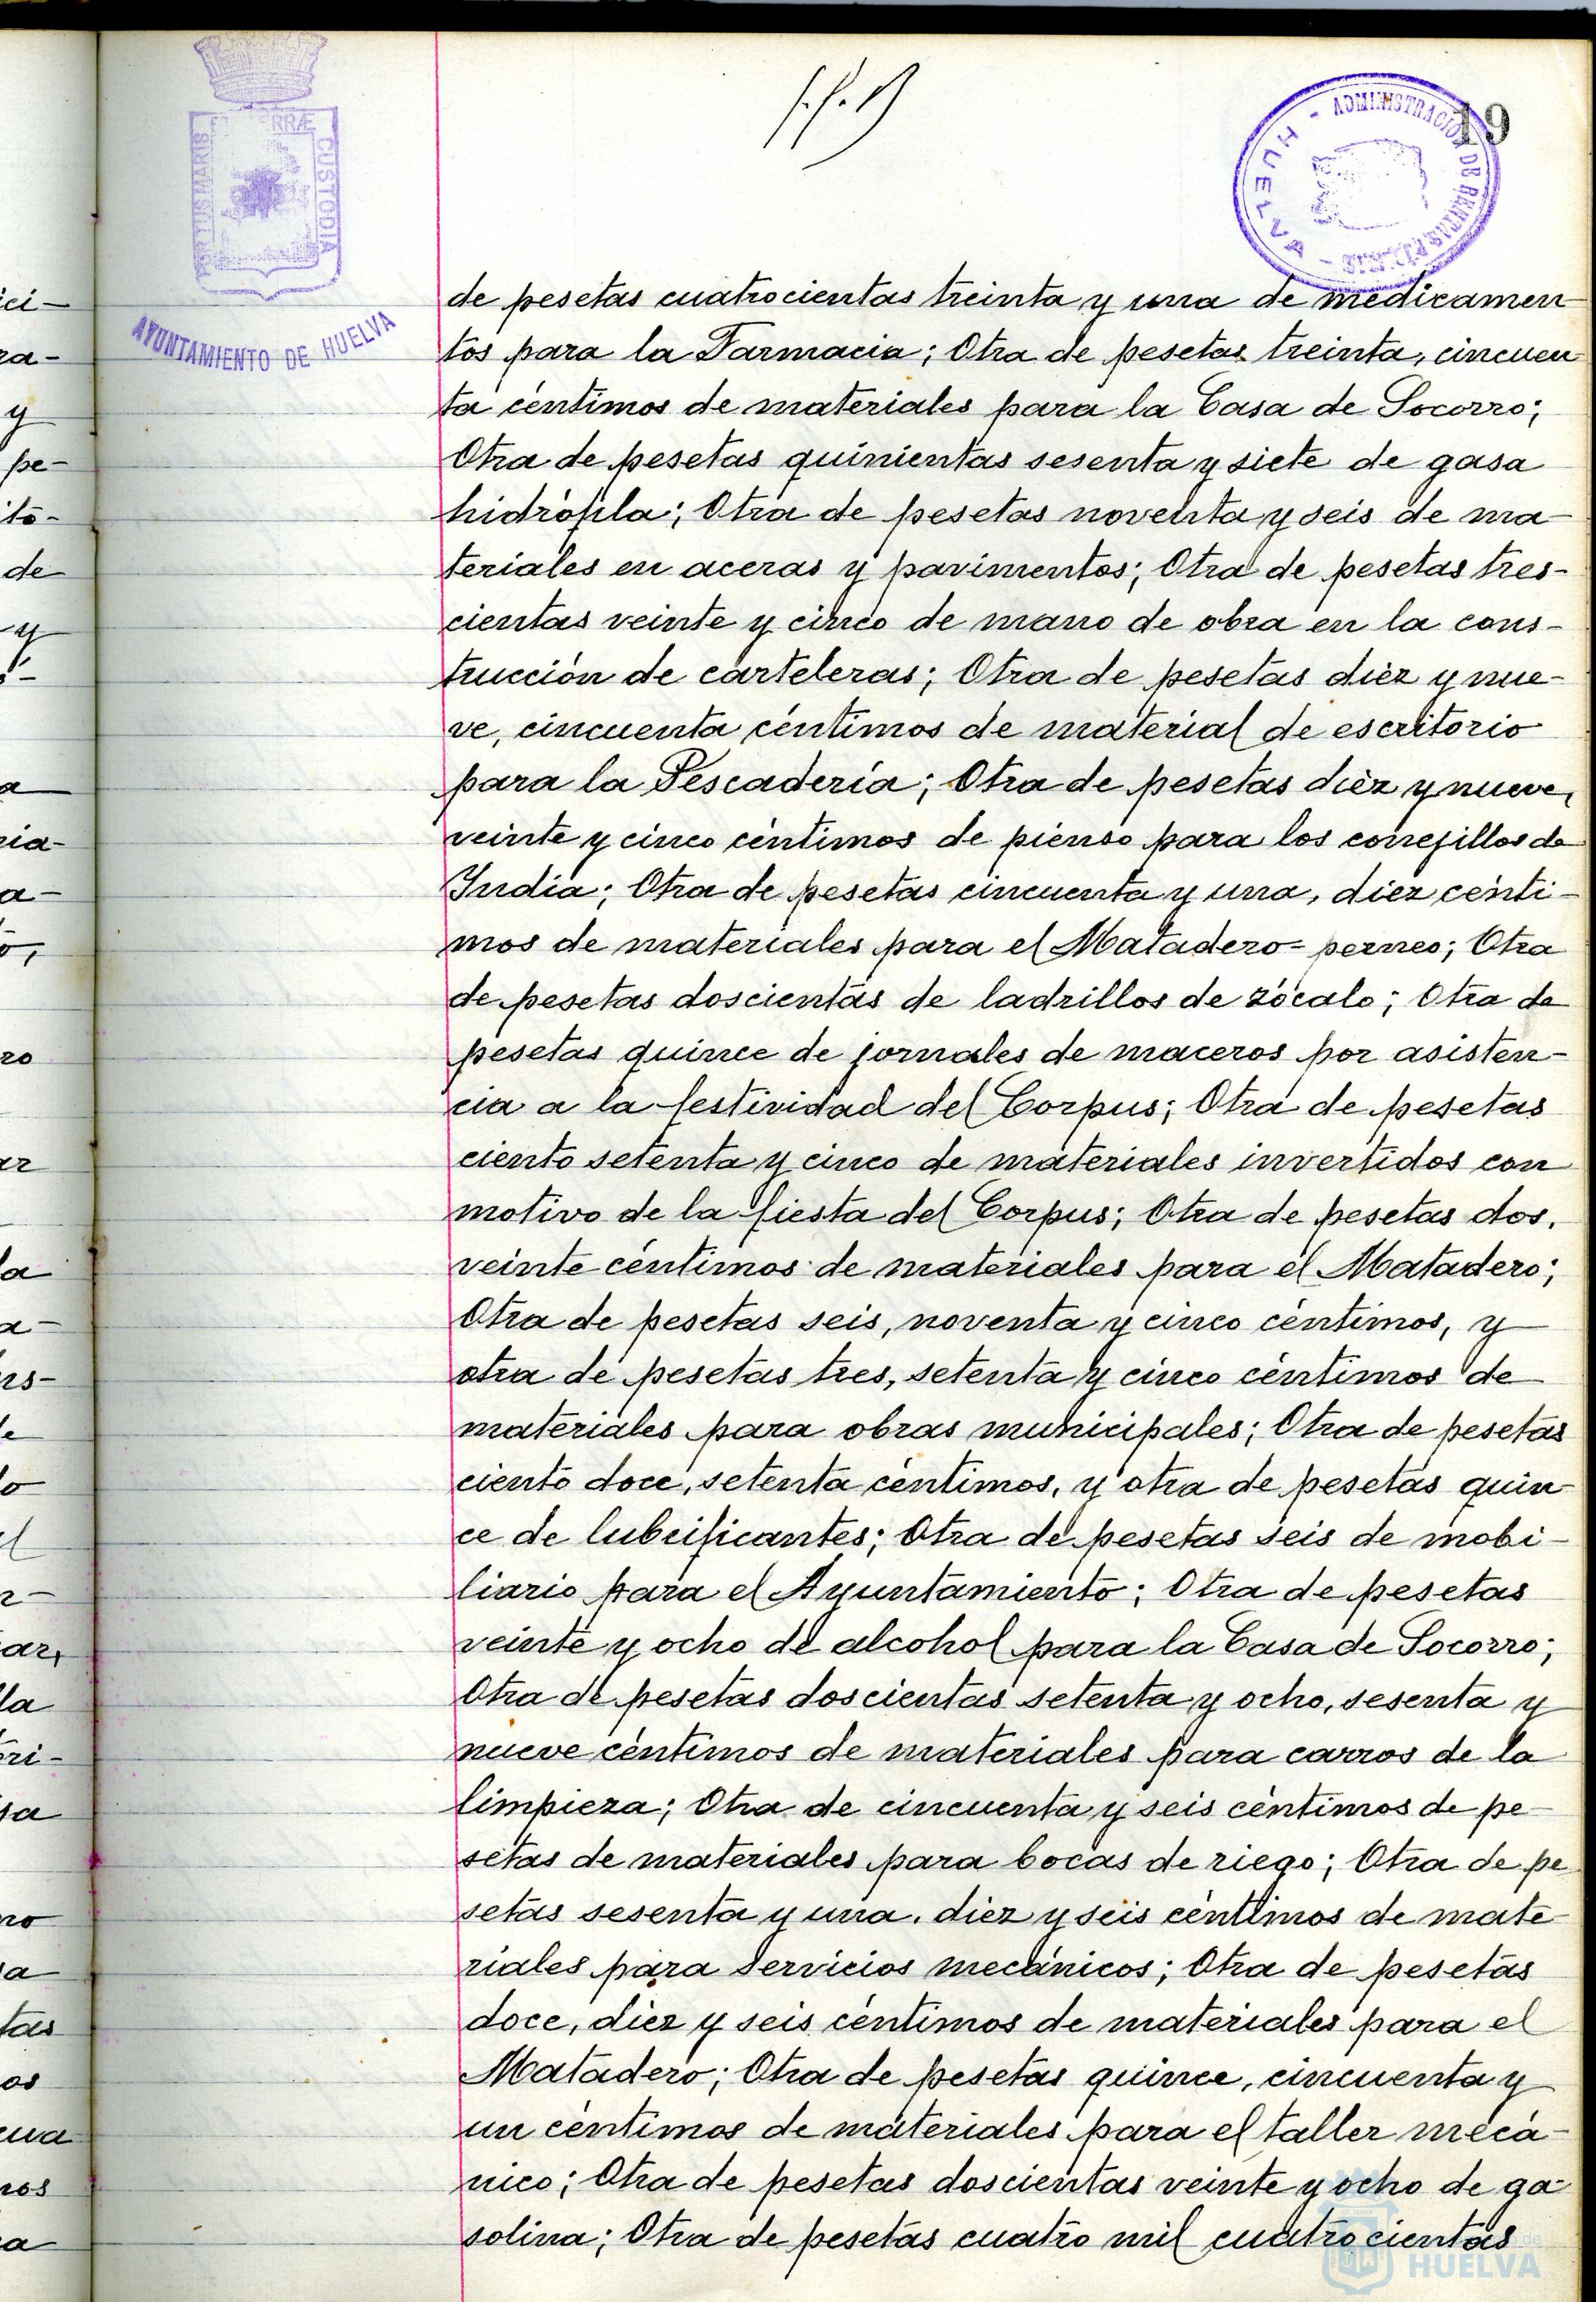 19
ADMINISTRACIÓN DE RENTAS
HUELVA
PORTUS MARIS
TERRÆ CUSTODIA
AYUNTAMIENTO DE HUELVA
de pesetas cuatrocientas treinta y una de medicamen
tos para la Farmacia; Otra de pesetas treinta, cincuen
ta céntimos de materiales para la Casa de Socorro;
Otra de pesetas quinientas sesenta y siete de gasa
hidrófila; Otra de pesetas noventa y seis de ma-
teriales en aceras y pavimentos; Otra de pesetas tres-
cientas veinte y cinco de mano de obra en la cons-
trucción de carteleras; Otra de pesetas diez y nue-
ve, cincuenta céntimos de material de escritorio
para la Pescadería; Otra de pesetas diez y nueve,
veinte y cinco céntimos de pienso para los conejillos de
India; Otra de pesetas cincuenta y una, diez cénti-
mos de materiales para el Matadero-perneo; Otra
de pesetas doscientas de ladrillos de zócalo; Otra de
pesetas quince de jornales de maceros por asisten-
cia a la festividad del Corpus; Otra de pesetas
ciento setenta y cinco de materiales invertidos con
motivo de la fiesta del Corpus; Otra de pesetas dos,
veinte céntimos de materiales para el Matadero;
Otra de pesetas seis, noventa y cinco céntimos, y
otra de pesetas tres, setenta y cinco céntimos de
materiales para obras municipales; Otra de pesetas
ciento doce, setenta céntimos, y otra de pesetas quin-
ce de lubrificantes; Otra de pesetas seis de mobi-
liario para el Ayuntamiento; Otra de pesetas
veinte y ocho de alcohol para la Casa de Socorro;
Otra de pesetas doscientas setenta y ocho, sesenta y
nueve céntimos de materiales para carros de la
limpieza; Otra de cincuenta y seis céntimos de pe-
setas de materiales para bocas de riego; Otra de pe
setas sesenta y una, diez y seis céntimos de mate
riales para servicios mecánicos; Otra de pesetas
doce, diez y seis céntimos de materiales para el
Matadero; Otra de pesetas quince, cincuenta y
un céntimos de materiales para el taller mecá-
nico; Otra de pesetas doscientas veinte y ocho de ga-
solina; Otra de pesetas cuatro mil cuatrocientas
HUELVA